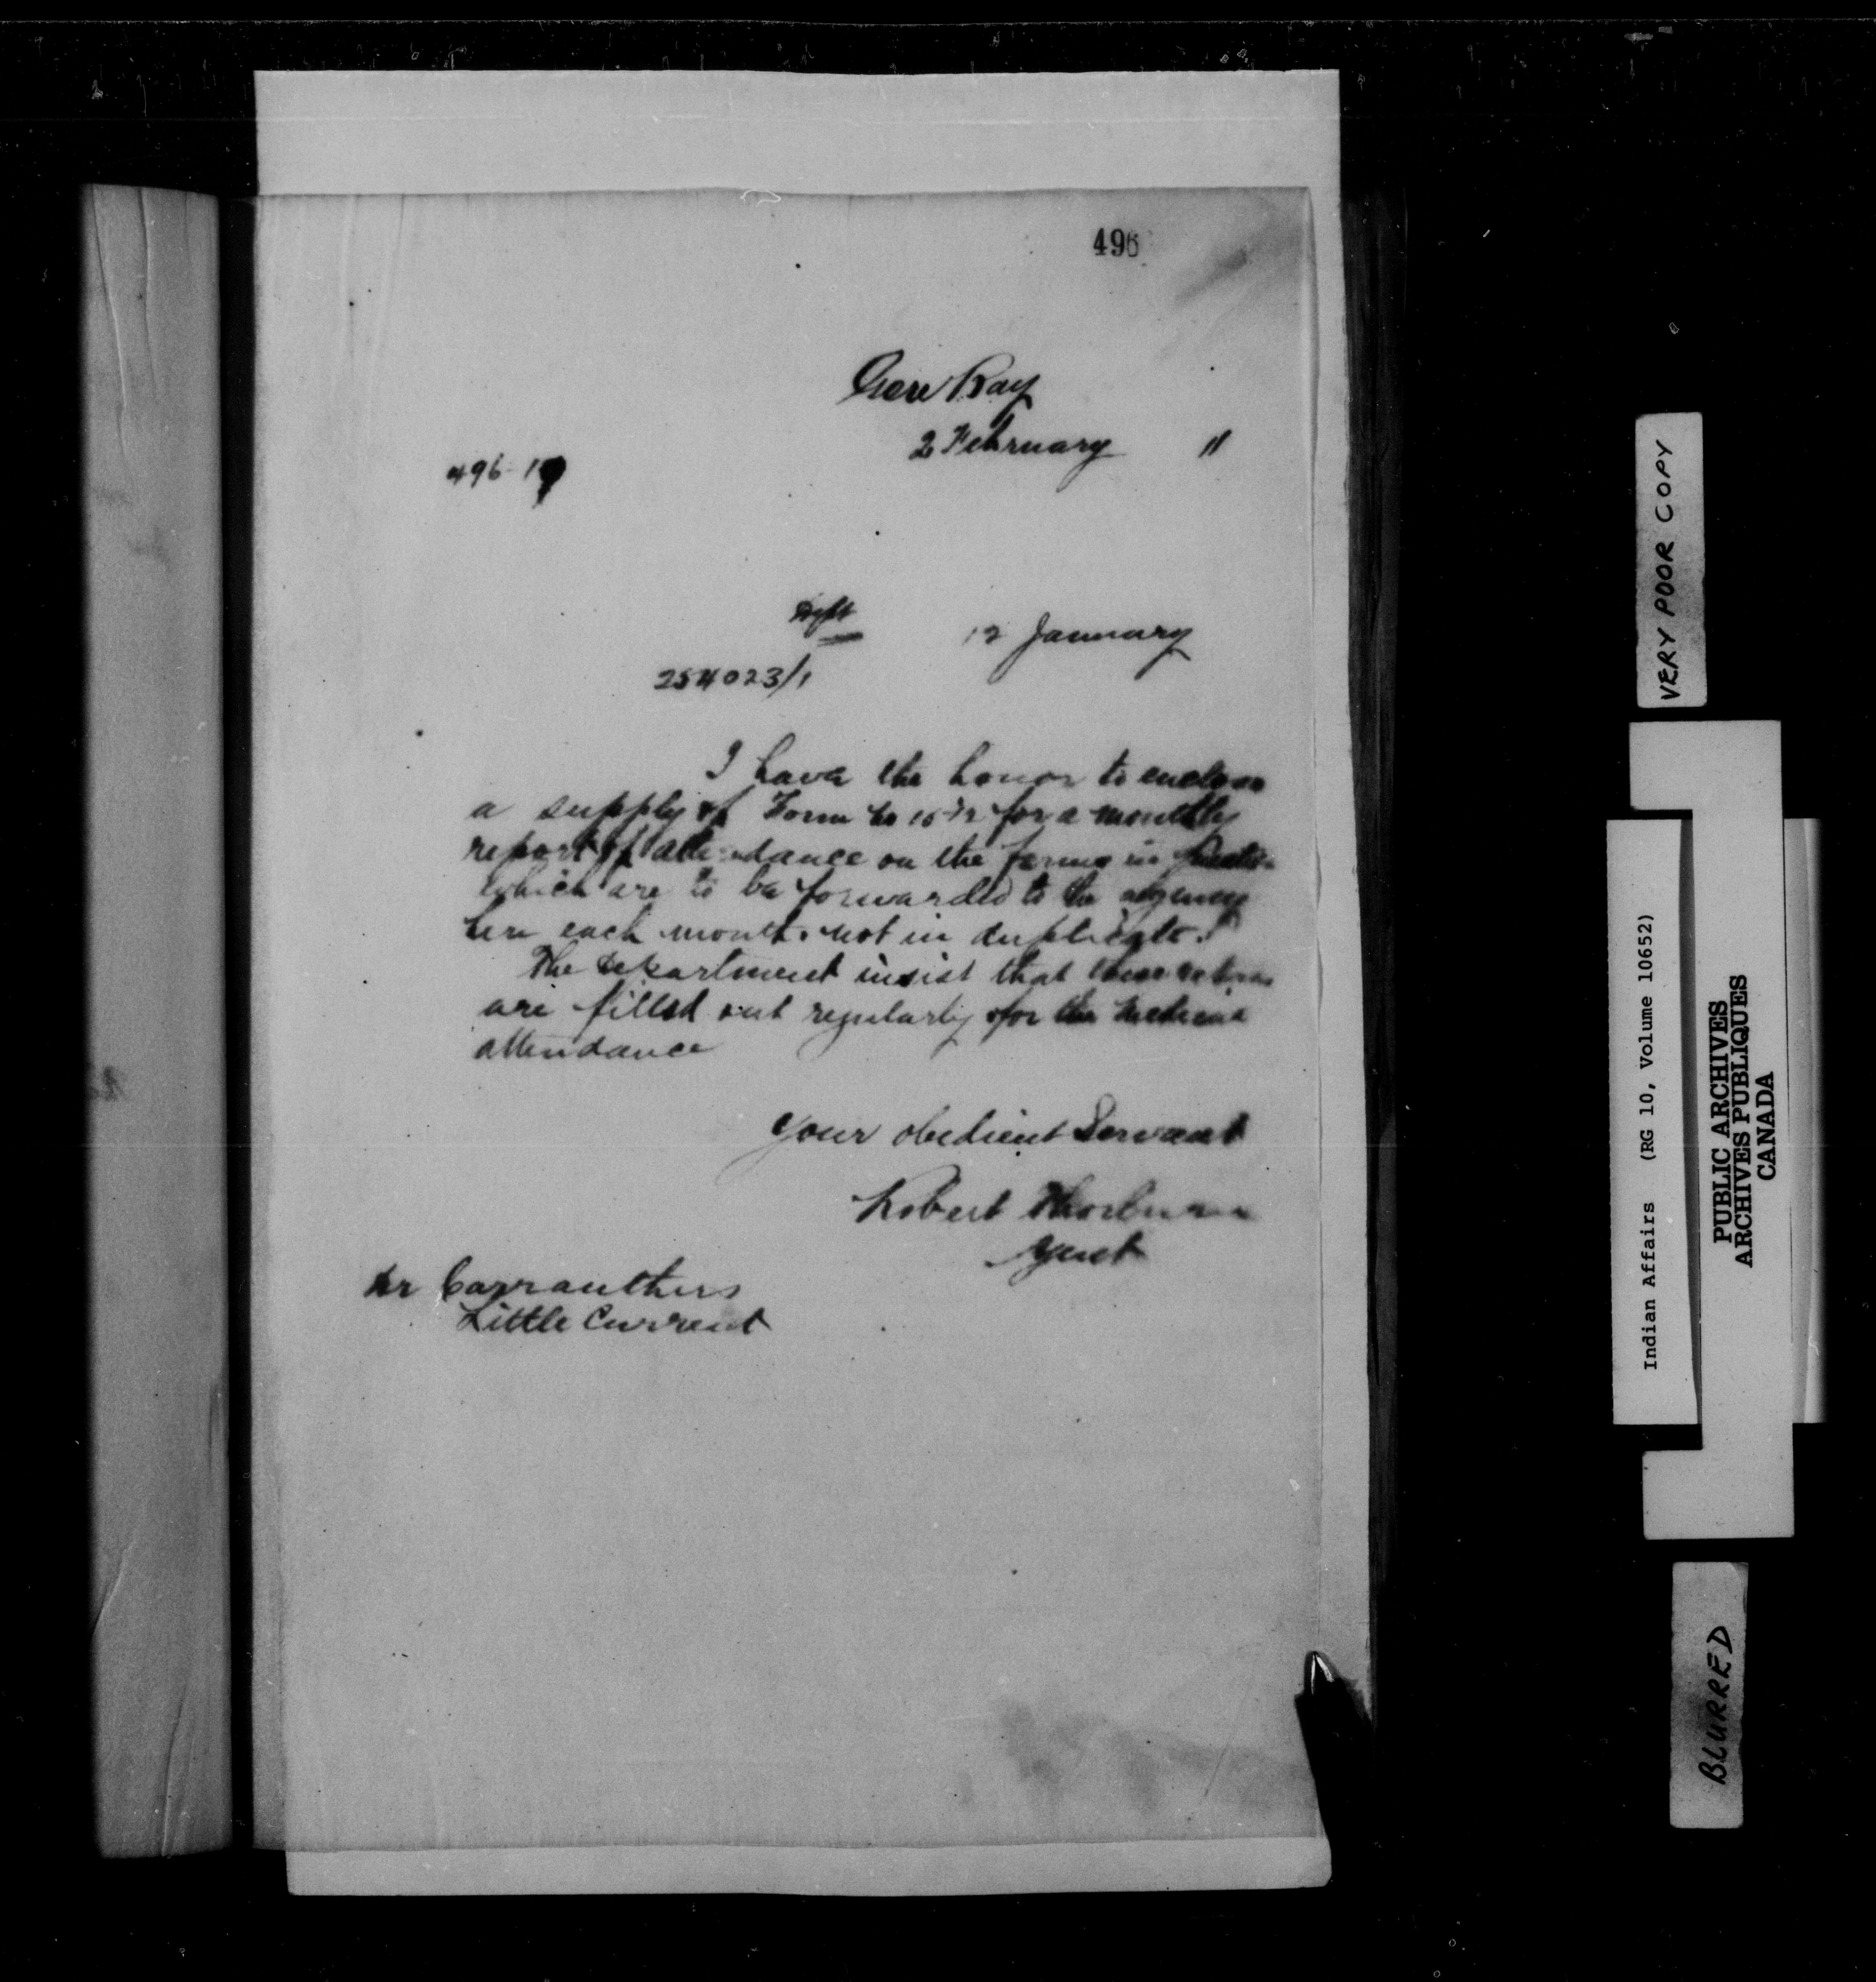 496
Gore Bay
2 February 11
496-19
Dept 12 January
254023/1
I have the honor to enclose
a supply of Form No for a monthly
report of attendance on the forms in
which are to be forwarded to the agency
here each month. not in duplicate.
The Department insist that these returns
are filled out regularly for the
attendance
Your obedient Servant
Robert Thorburn
Agent
Dr Carruthers
Little Current
VERY POOR COPY
Indian Affairs (RG 10, Volume 10652)
PUBLIC ARCHIVES
ARCHIVES PUBLIQUES
CANADA
BLURRED